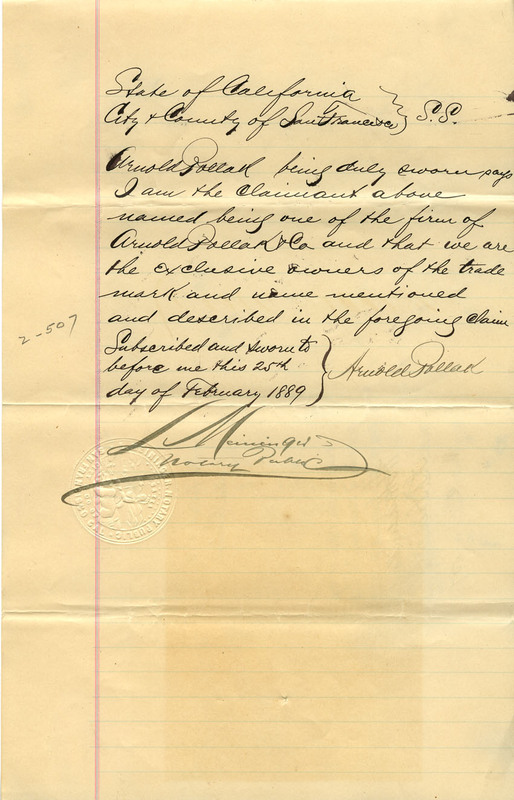 State of California
City & County of San Francisco } S.S.
Arnold Pollak being duly sworn says
I am the claimant above
named being one of the firm of
Arnold Pollak & Co and that we are
the exclusive owners of the trade
mark and name mentioned
and described in the foregoing claim
2-507
Subscribed and sworn to
before me this 25th
day of February 1889
Arnold Pollak
L Meininger
Notary Public